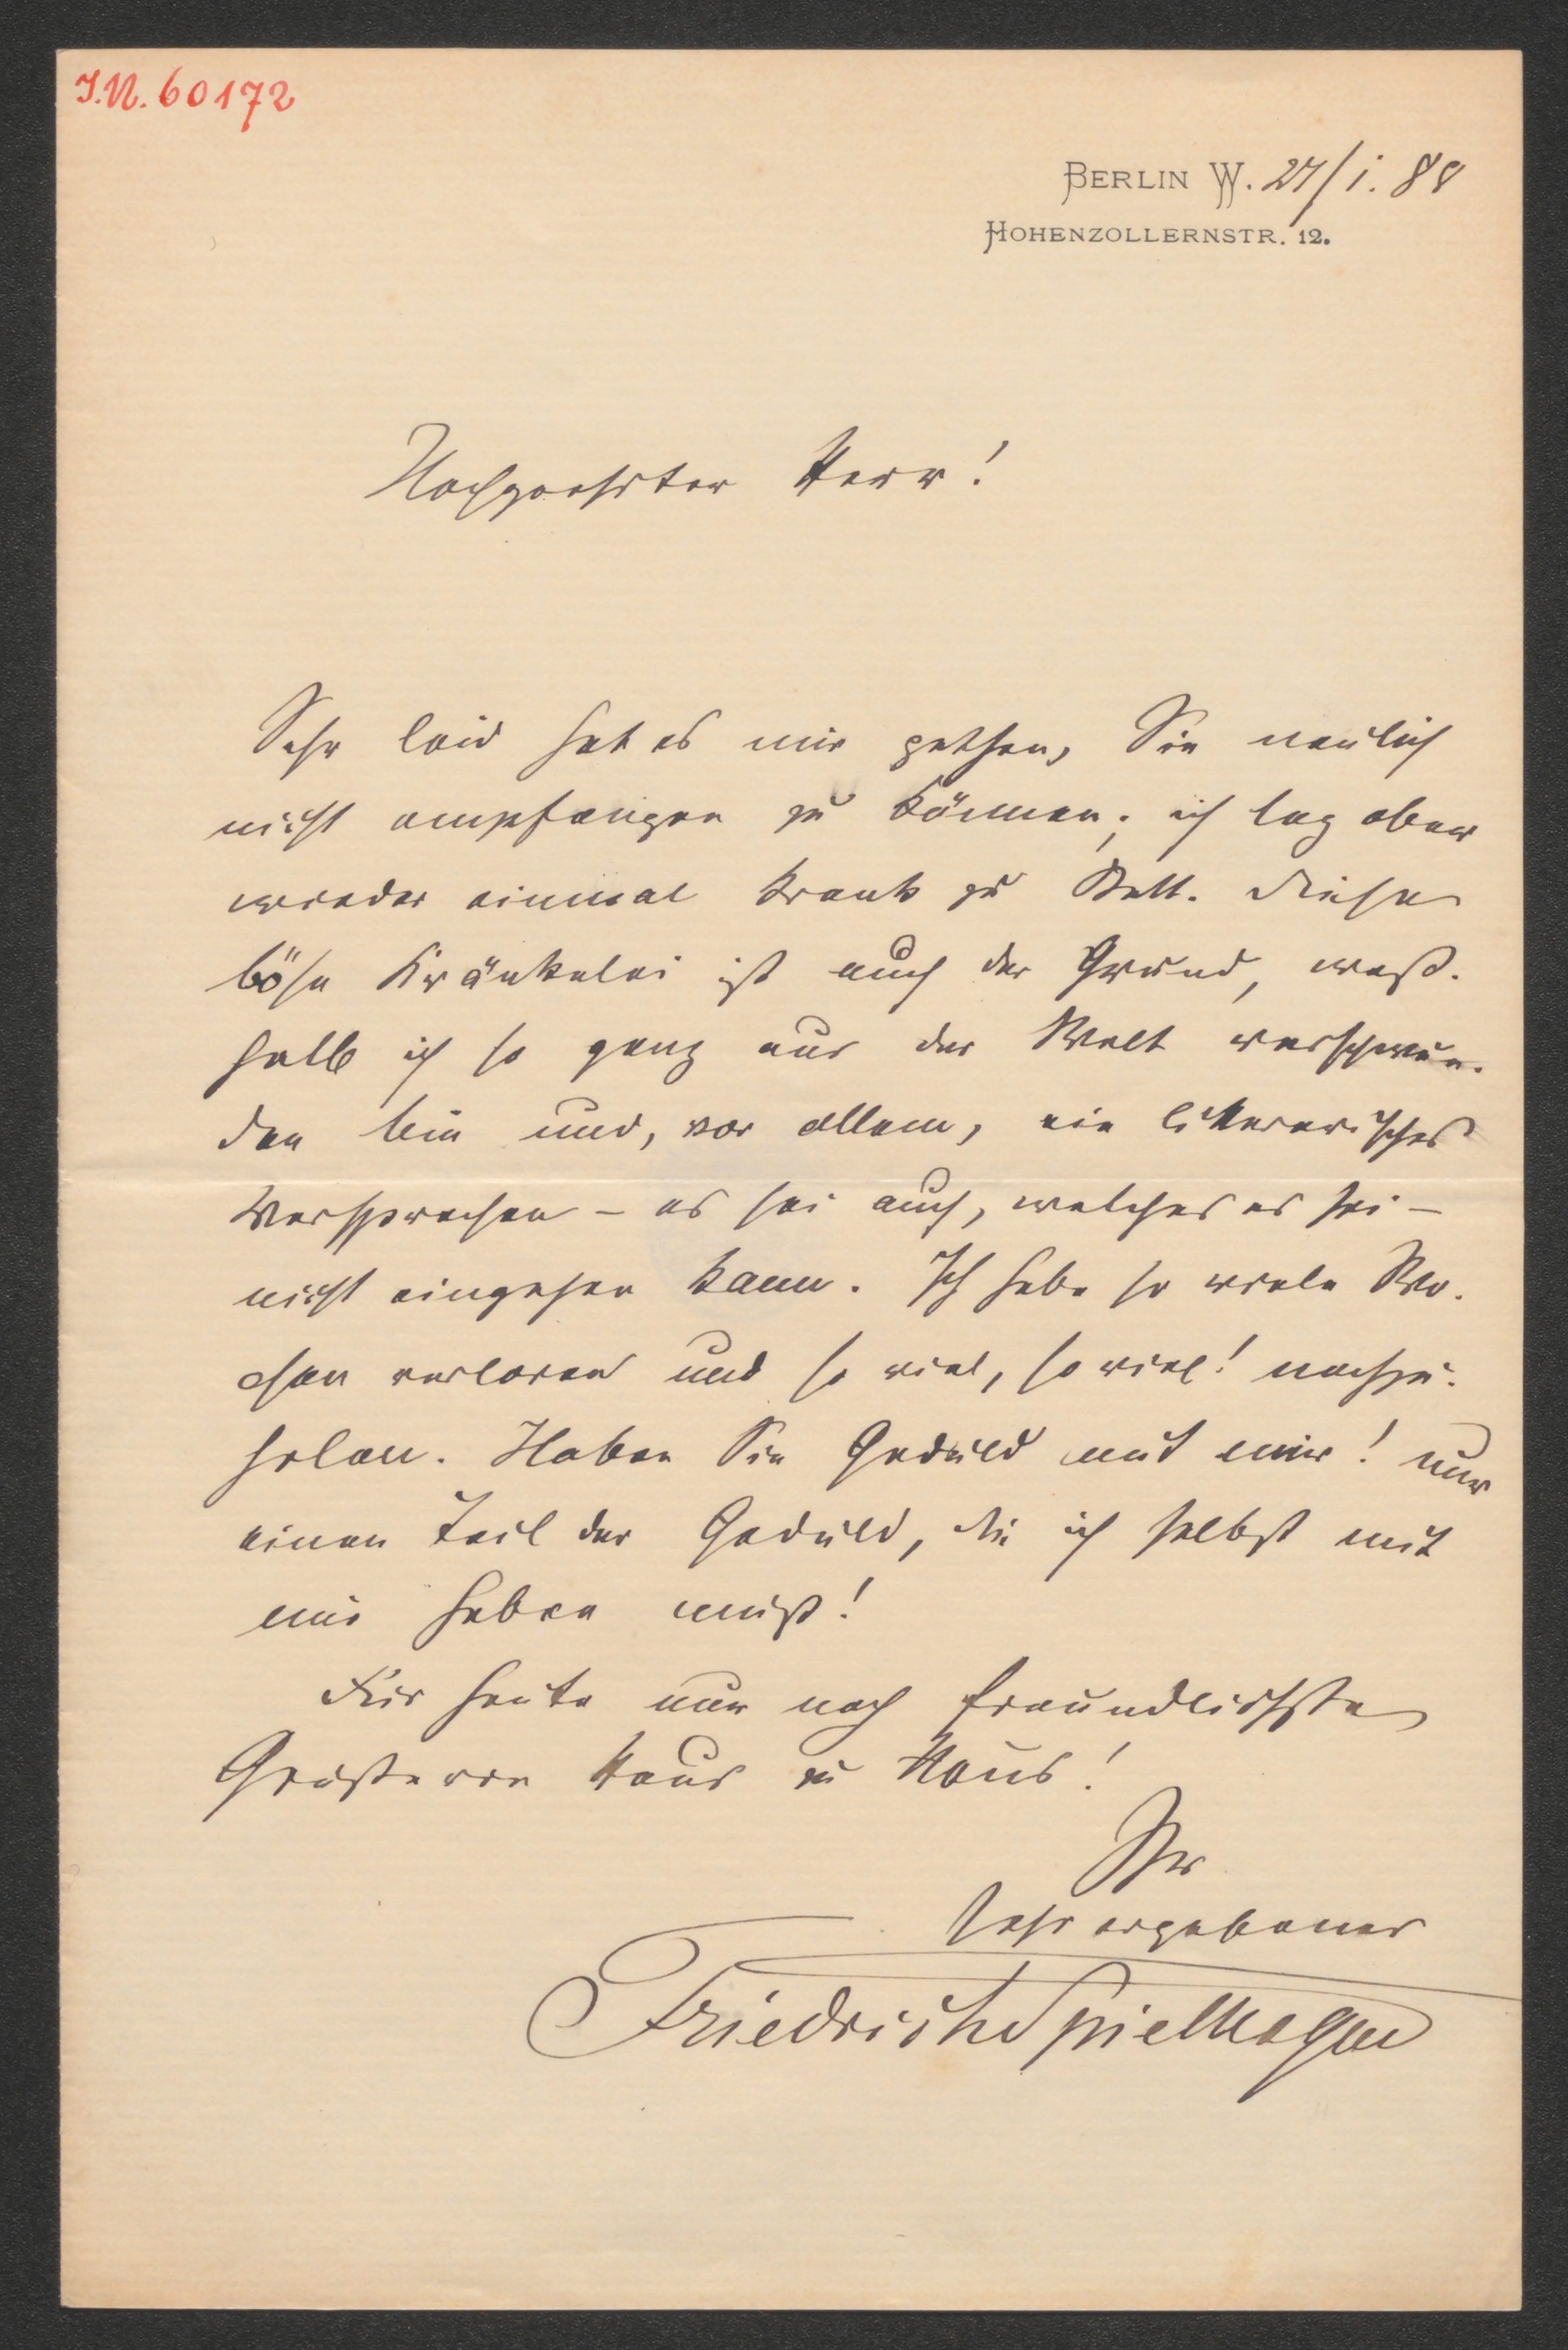 I.N. 60172
BERLIN W. 27/1. 88
HOHENZOLLERNSTR. 12.
Hochgeehrter Herr!
Sehr leid hat es mir gethan, Sie neulich
nicht empfangen zu können; ich lag aber
wieder einmal krank zu Bett. Diese
böse Kränkelei ist auch der Grund, weß-
halb ich so ganz aus der Welt verschwun-
den bin und, vor allem, ein litterarisches
Versprechen – es sei auch, welches es sei –
nicht eingehen kann. Ich habe so viele Wo-
chen verloren und so viel, so viel! nachzu-
holen. Haben Sie Geduld mit mir! nur
einen Teil der Geduld, die ich selbst mit
mir haben muß!
Für heute nur noch freundlichste
Grüße von Haus zu Haus!
Ihr
sehr ergebener
Friedrich Spielhagen